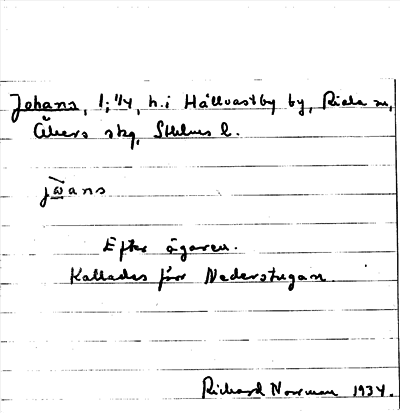 Johans, 1; 1/4, h. i Hållvastby by, Riala sn,
Åkers skg, Sthlms l.
jωans
Efter ägaren.
Kallades förr Nederstugan.
Richard Norrman 1934.